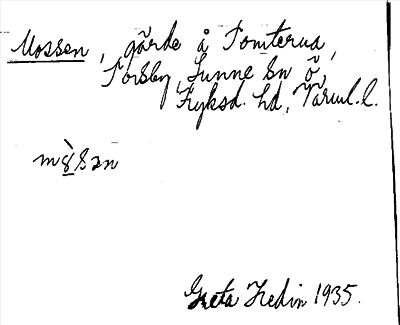 Mossen, gärde å Tomterna,
Torsby, Sunne sn ö,
Fryksd. hd, Värml. l.
mò̤sən
Greta Hedin 1935.